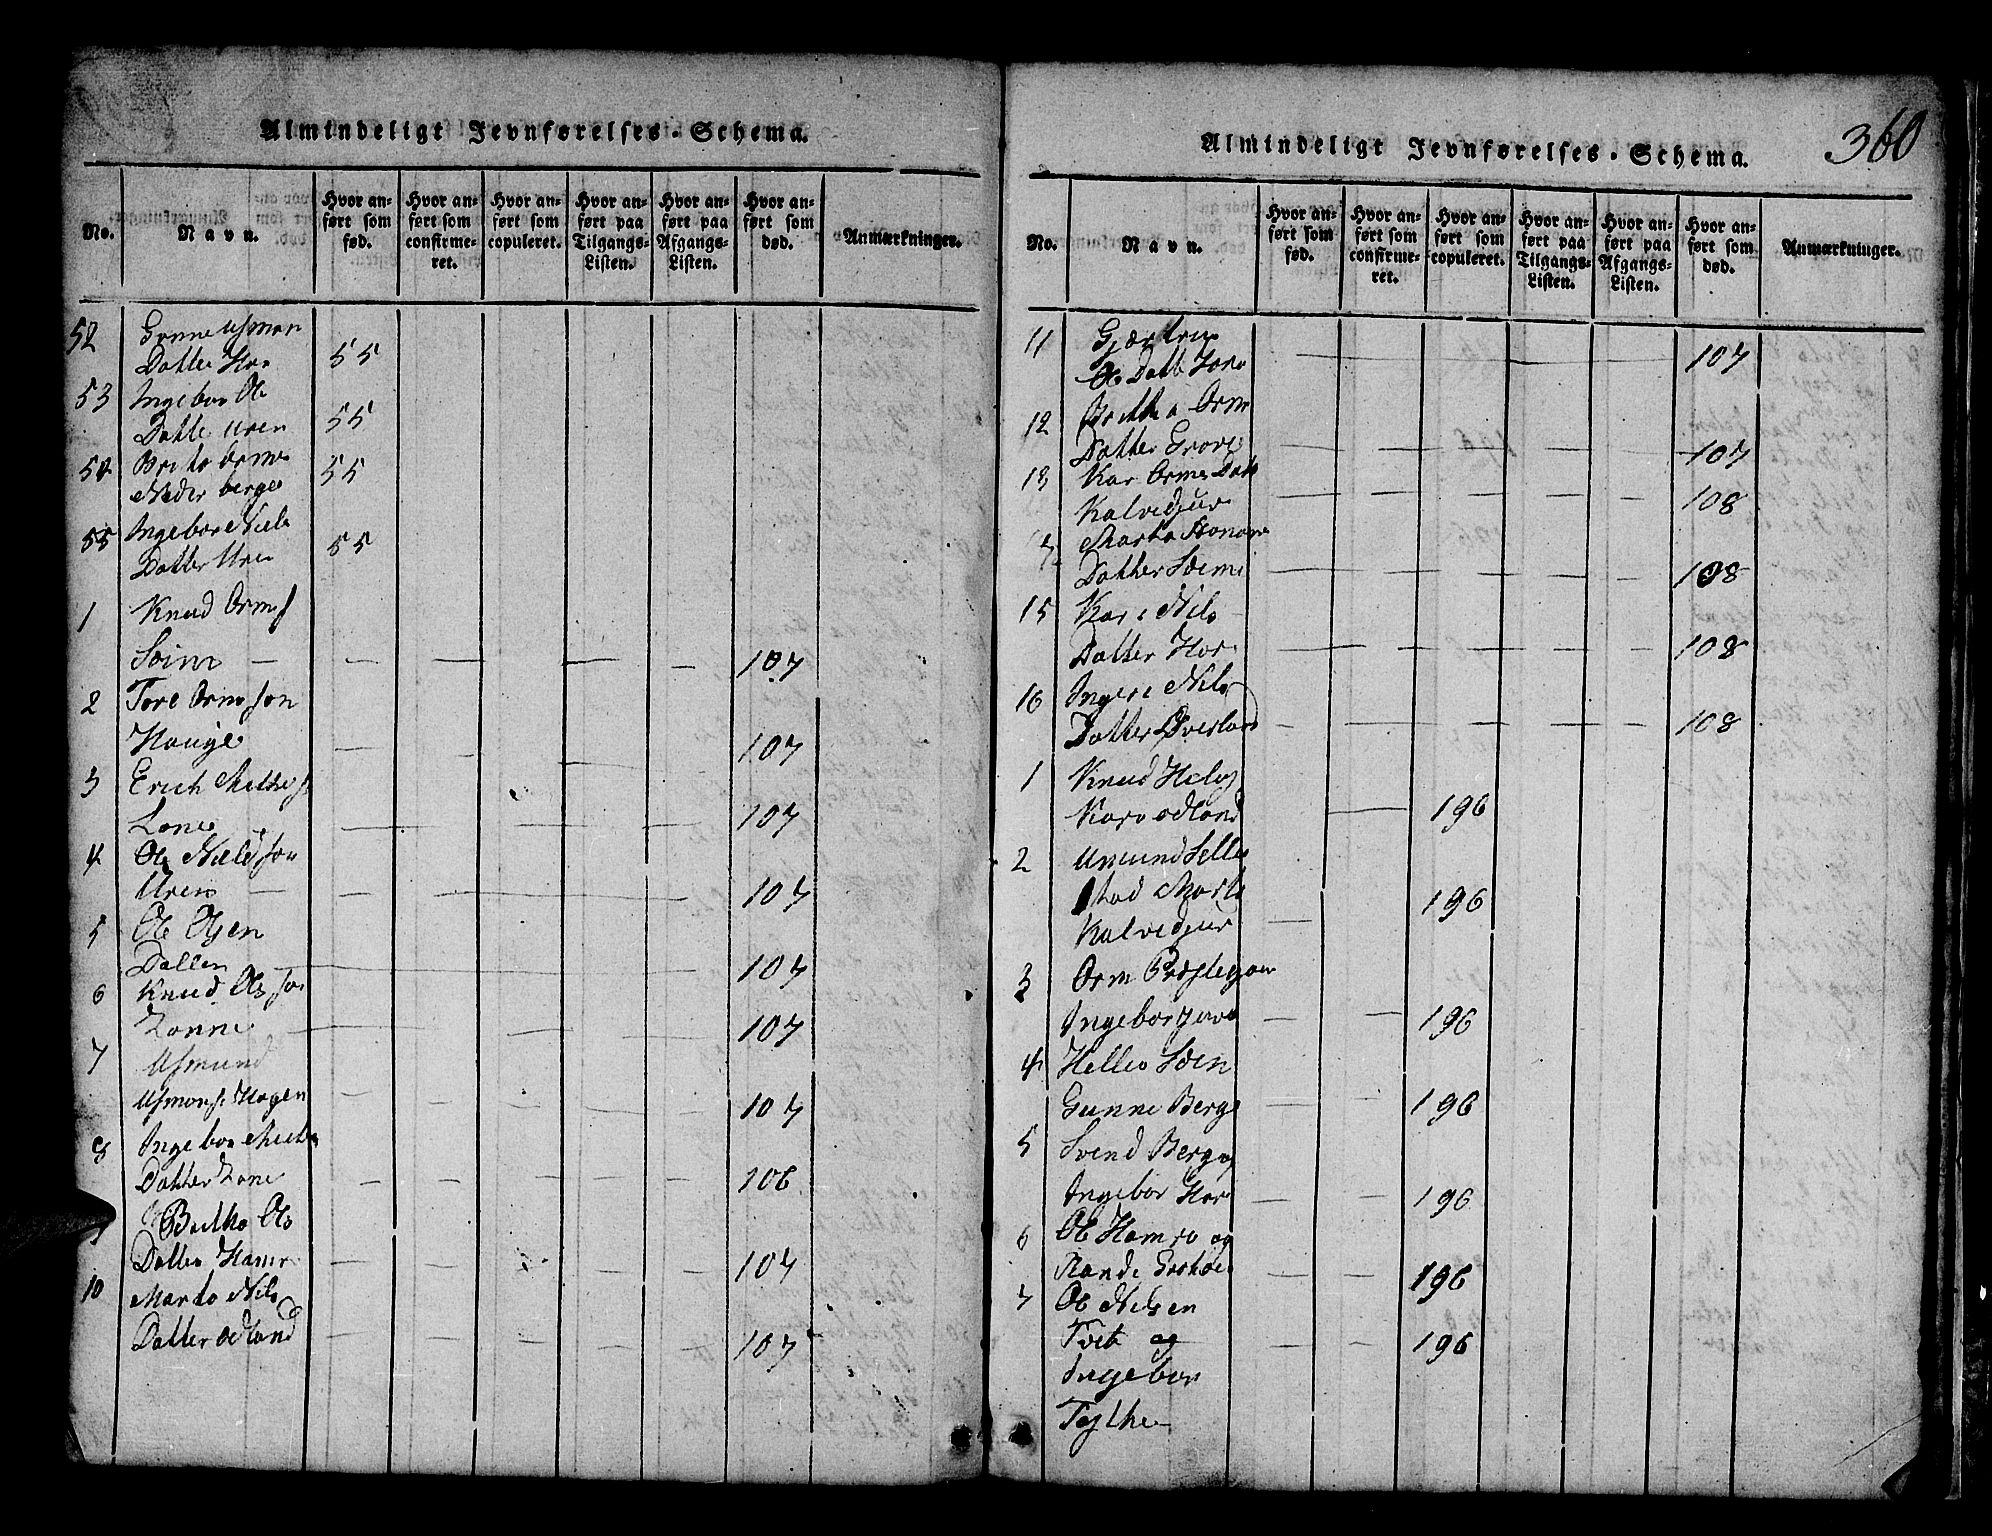 Almindeligt Jevnførelses-Schema.
No.
Navn.
Hvor anført som fød.
Hvor anført som confirmeret.
Hvor anført som copuleret.
Hvor anført paa Tilgangs-Listen.
Hvor anført paa Afgangs-Listen.
Hvor anført som død.
Anmærkninger.
52 Gunne Asmon
Datter Hor 55
53 Ingebor Ole
Datte Uren 55
54 Brita Orms
Neder berge 55
55 Ingebor Niels
Datter Uren 55
1 Knud Orms
Soim — 107
2 Tore Ormson
Houge 107
3 Erich
Lone 107
4 Ole Nielsson
Uren — 107
5 Ole Olsen
Dallen 107
6 Knud Ols son
Lonne 107
7 Asmund
Asmons Hagen 107
8 Ingebor
Datter Lone 106
Britha Ols
Datter Hamr 107
10 Marta Nils
Datter Odland 107
Almindeligt Jevnførelses-Schema.
360
No.
Navn.
Hvor anført som fød.
Hvor anført som confirmeret.
Hvor anført som copuleret.
Hvor anført paa Tilgangs-Listen.
Hvor anført paa Afgangs-Listen.
Hvor anført som død.
Anmærkninger.
11 Gjærtru
Ole Datt 107
12 Britha Orm
Datter Grove 107
13 Kar Orms Datt
Kalvedjur 108
Marta
Datter Soeme 108
15 Kari Nils
Datter Hor 108
16 Ingeri Nils
Datter Øverland 108
1 Knud Helg
Kari Odland 196
2 Amund Selle
stad Marte 196
Kalvedjur
3 Orm Prestegaar
Ingebor 196
4 Helleo Soen
Gunne Berge 196
5 Svend Berg og
Ingebor Hor 196
6 Ole Hamre og
Rande 196
7 Ole Nilsen
Tveit og 196
Ingebor